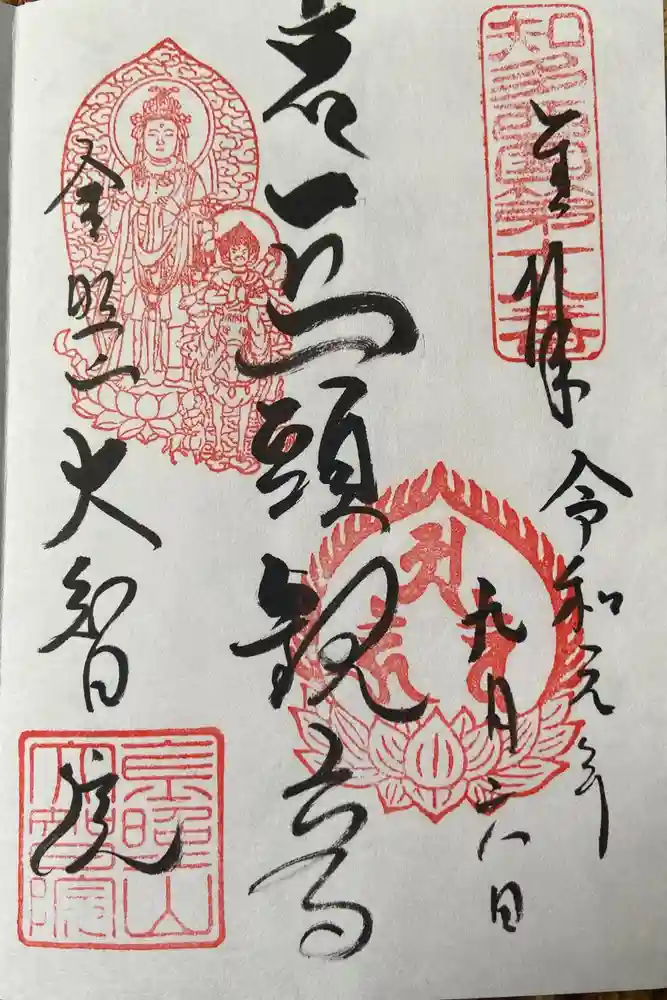 知多四国第七十一番
奉拝
令和元年
九月二八日
馬頭観音
金照山
大智院
金照山
大智院